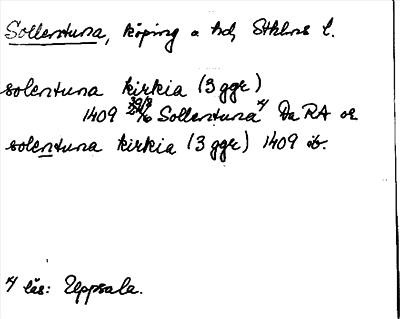 Sollentuna, köping o hd, Sthlms l.
solentuna kirkia (3 ggr)
1409 29/8 Sollentuna x/ Da RA or
solentuna kirkia (3 ggr) 1409 ib.
x/ läs: Uppsala.